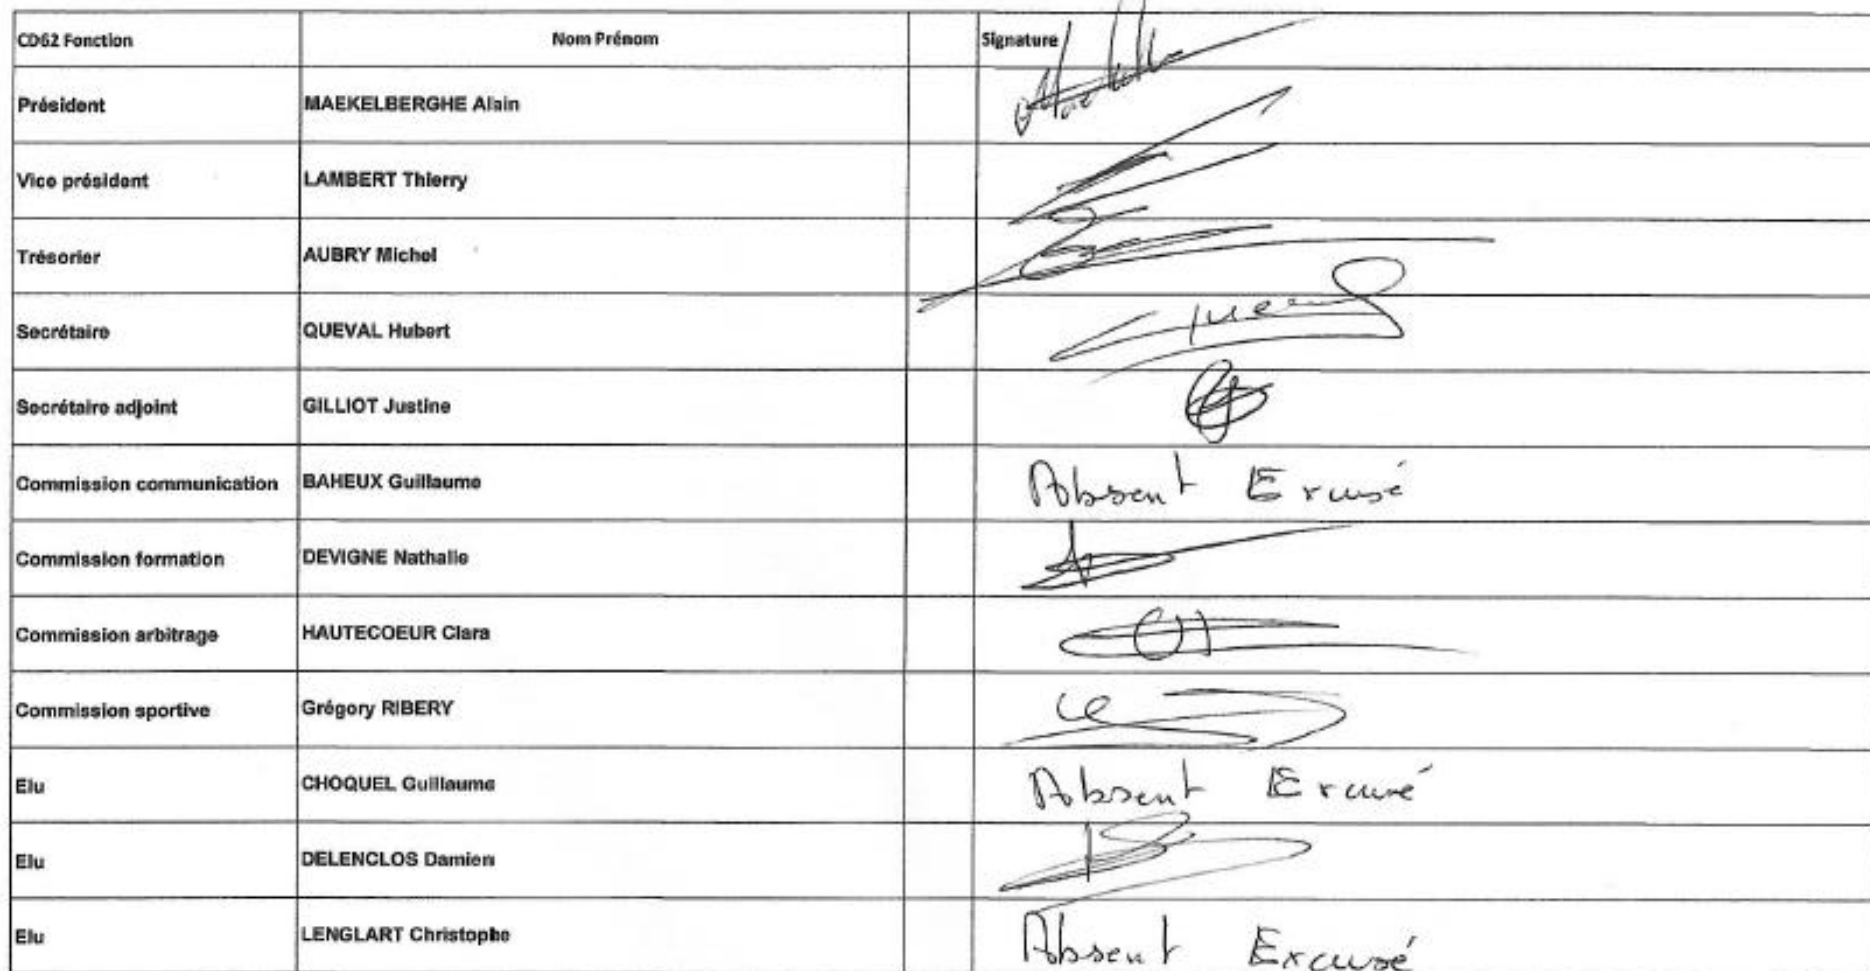 CD62 Fonction Nom Prénom Signature
Président MAEKELBERGHE Alain
Vice président LAMBERT Thierry
Trésorier AUBRY Michel
Secrétaire QUEVAL Hubert
Secrétaire adjoint GILLIOT Justine
Commission communication BAHEUX Guillaume Absent Excusé
Commission formation DEVIGNE Nathalie
Commission arbitrage HAUTECOEUR Clara
Commission sportive Grégory RIBERY
Elu CHOQUEL Guillaume Absent Excusé
Elu DELENCLOS Damien
Elu LENGLART Christophe Absent Excusé